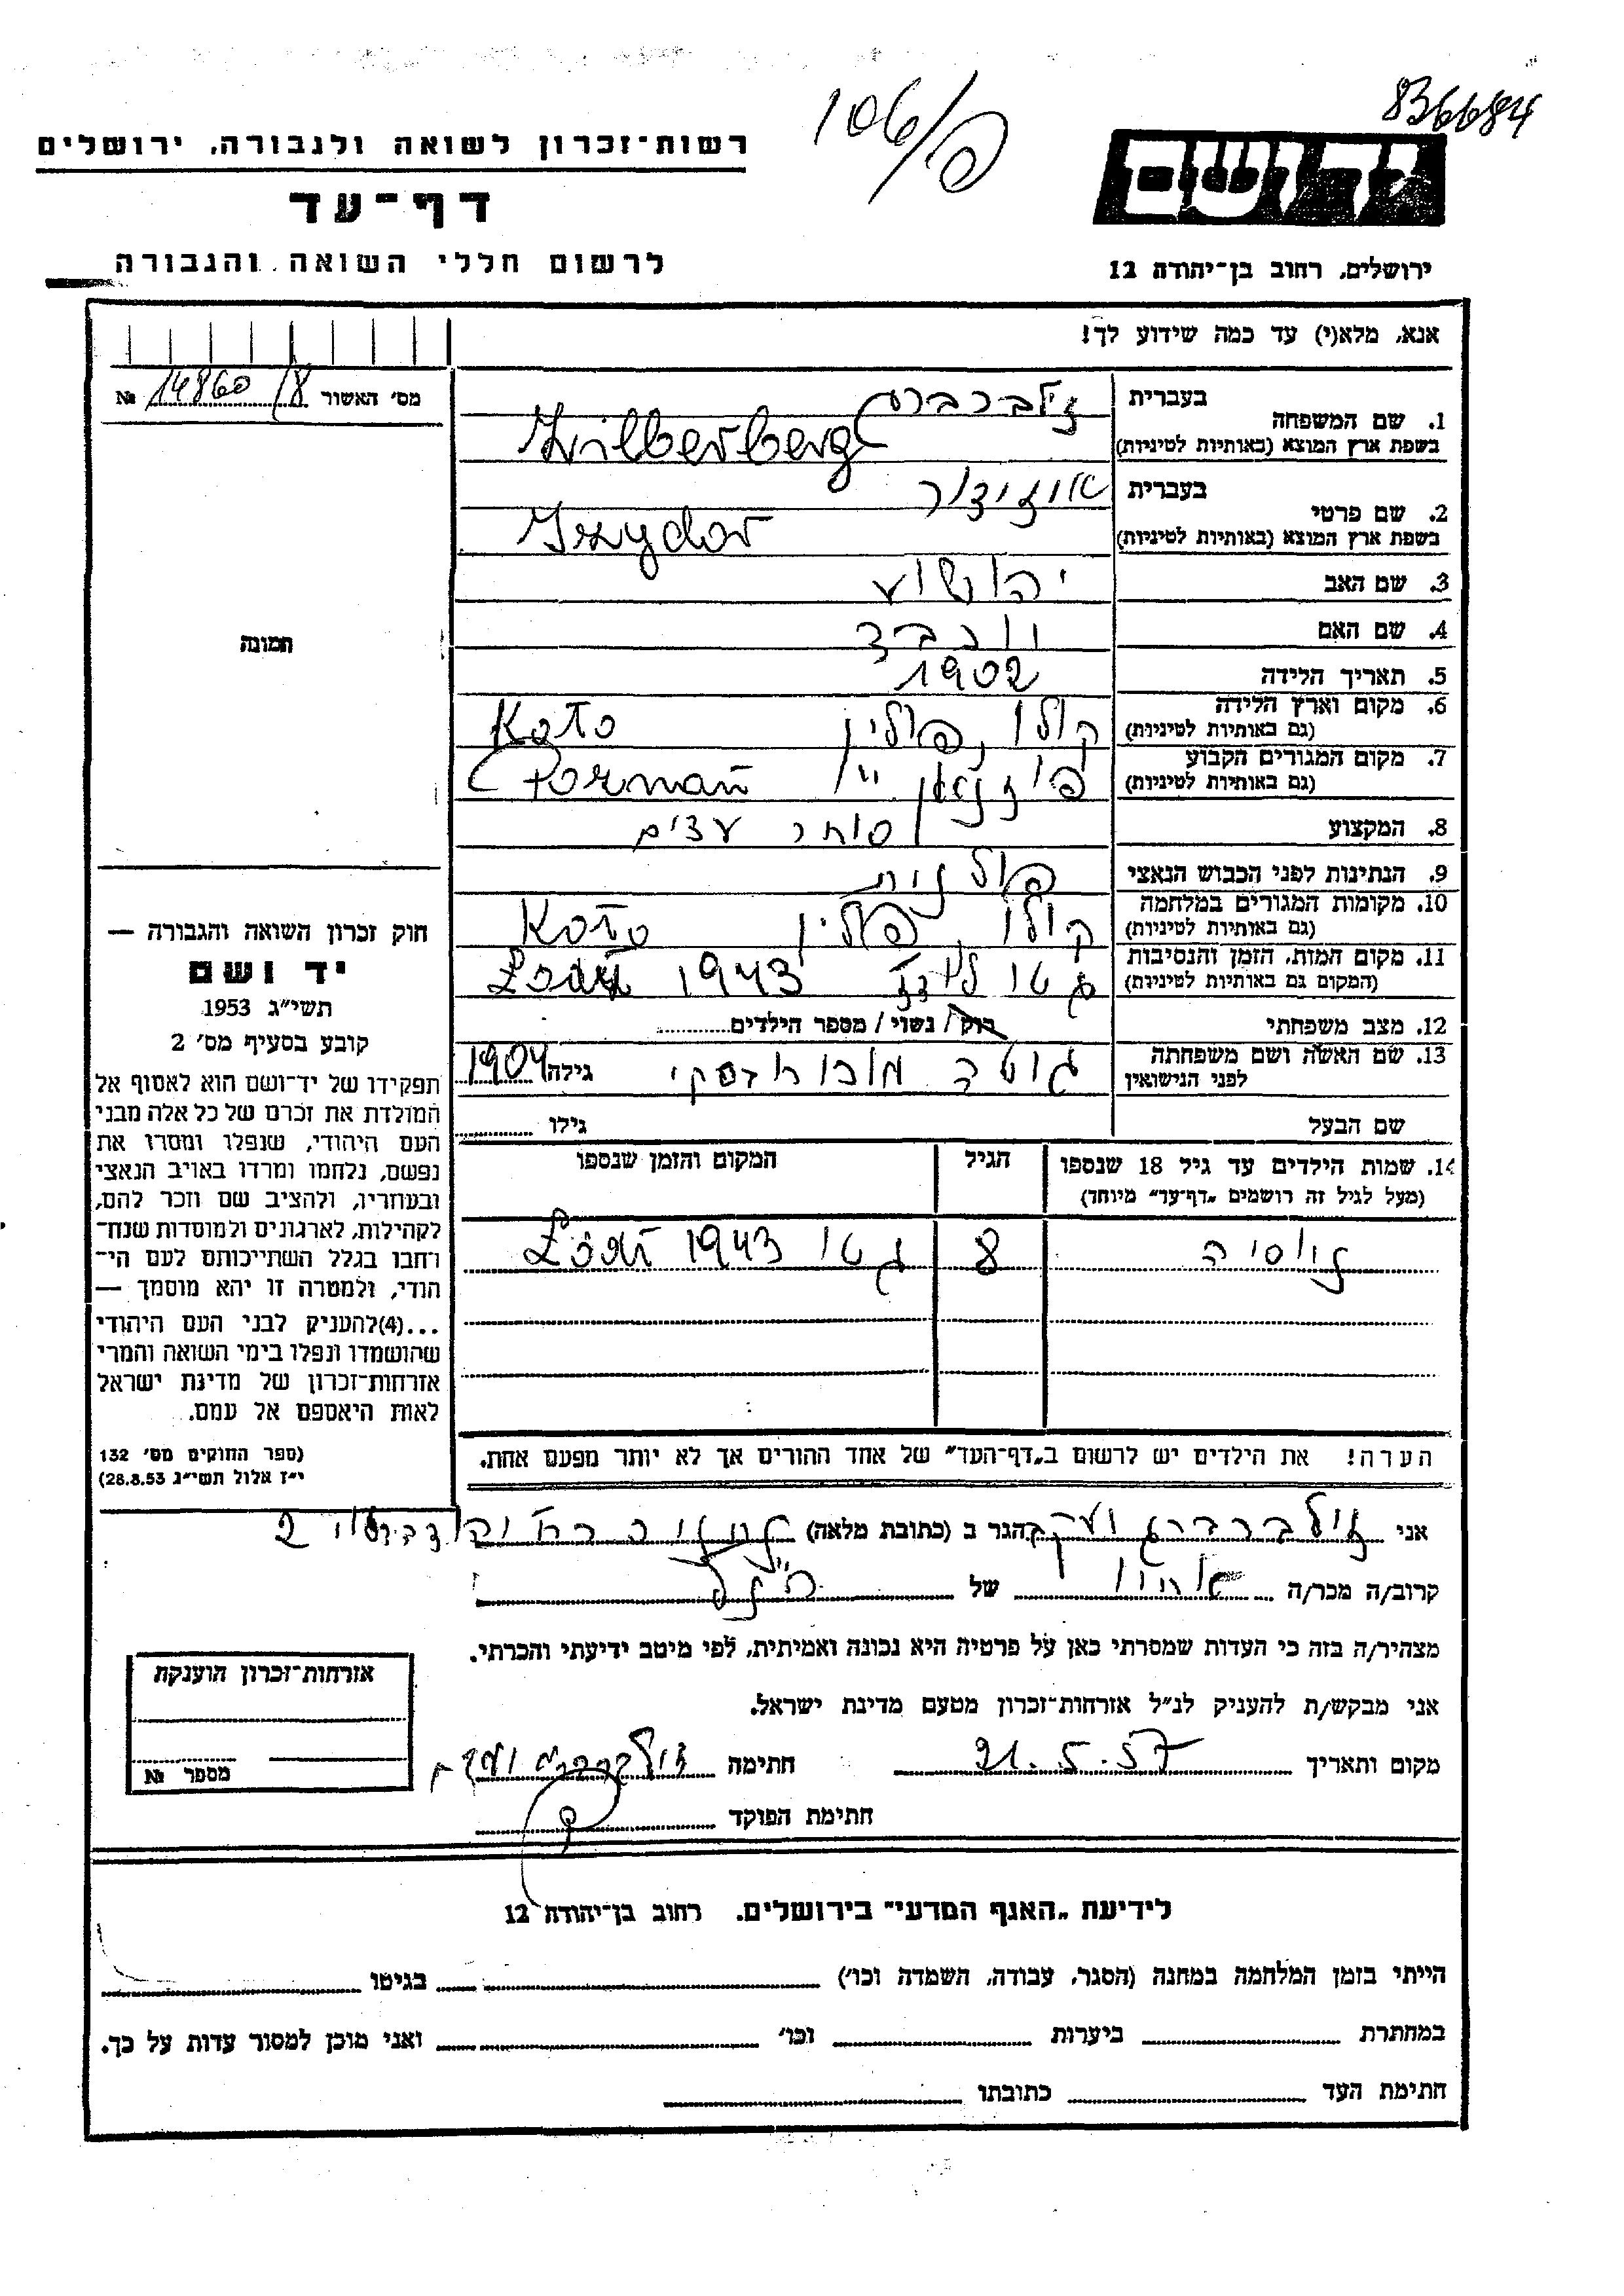 836684
106/פ
יד ושם
רשות־זכרון לשואה ולגבורה, ירושלים
דף־עד
לרשום חללי השואה והגבורה
ירושלים, רחוב בן־יהודה 12
אנא, מלא(י) עד כמה שידוע לך!
מס׳ האשור 14860/8 №
1. שם המשפחה בעברית זילברברג
בשפת ארץ המוצא (באותיות לטיניות) Zilberberg
2. שם פרטי בעברית איזידור
בשפת ארץ המוצא (באותיות לטיניות) Izydor
3. שם האב יהושע
4. שם האם יוכבד
5. תאריך הלידה 1902
6. מקום וארץ הלידה (גם באותיות לטיניות) קולו, פולין Koło
7. מקום המגורים הקבוע (גם באותיות לטיניות) פוזנאן Poznań
8. המקצוע סוחר עצים
9. הנתינות לפני הכבוש הנאצי פולנית
10. מקומות המגורים במלחמה (גם באותיות לטיניות) קולו, פולין Koło
11. מקום המות, הזמן והנסיבות (המקום גם באותיות לטיניות) גטו לודז 1943 Łódź
12. מצב משפחתי רוק/ נשוי/ מספר הילדים
13. שם האשה ושם משפחתה לפני הנישואין גוטה גילה 1904
שם הבעל גילו
14. שמות הילדים עד גיל 18 שנספו הגיל המקום והזמן שנספו
(מעל לגיל זה רושמים „דף־עד״ מיוחד)
8 גטו 1943 Łódź
הערה! את הילדים יש לרשום ב„דף־העד״ של אחד ההורים אך לא יותר מפעם אחת.
תמונה
חוק זכרון השואה והגבורה —
יד ושם
תשי״ג 1953
קובע בסעיף מס׳ 2
תפקידו של יד־ושם הוא לאסוף אל
המולדת את זכרם של כל אלה מבני
העם היהודי, שנפלו ומסרו את
נפשם, נלחמו ומרדו באויב הנאצי
ובעוזריו, ולהציב שם וזכר להם,
לקהילות, לארגונים ולמוסדות שנח־
רחבו בגלל השתייכותם לעם הי־
הודי, ולמטרה זו יהא מוסמך —
...(4)להעניק לבני העם היהודי
שהושמדו ונפלו בימי השואה והמרי
אזרחות־זכרון של מדינת ישראל
לאות היאספם אל עמם.
(ספר החוקים מס׳ 132
י״ז אלול תשי״ג 28.8.53)
אני זילברברג יעקב הגר ב (כתובת מלאה) 2
קרוב/ה מכר/ה אחיו של הנ״ל
מצהיר/ה בזה כי העדות שמסרתי כאן על פרטיה היא נכונה ואמיתית, לפי מיטב ידיעתי והכרתי.
אני מבקש/ת להעניק לנ״ל אזרחות־זכרון מטעם מדינת ישראל.
מקום ותאריך 21.5.57 חתימה זילברברג יעקב
חתימת הפוקד
אזרחות־זכרון הוענקה
מספר №
לידיעת „האגף המדעי״ בירושלים, רחוב בן־יהודה 12
הייתי בזמן המלחמה במחנה (הסגר, עבודה, השמדה וכו׳) בגיטו
במחתרת ביערות וכו׳ ואני מוכן למסור עדות על כך.
חתימת העד כתובתו